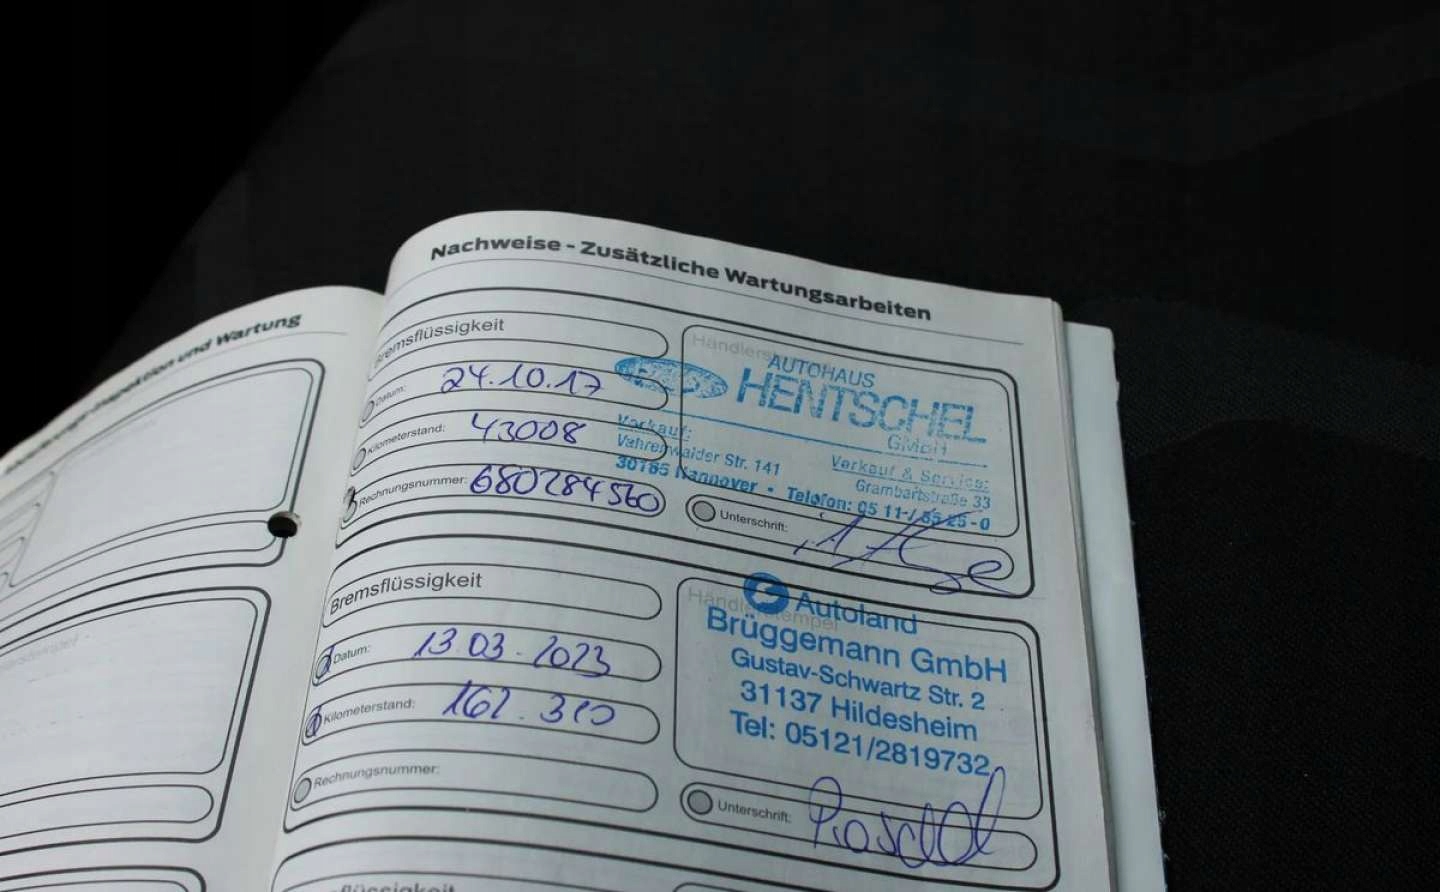 Nachweise - Zusätzliche Wartungsarbeiten
Bremsflüssigkeit
Datum: 24.10.17
Kilometerstand: 43008
Rechnungsnummer: 680284560
AUTOHAUS
HENTSCHEL
GmbH
Verkauf:
Vahrenwalder Str. 141
30165 Hannover • Telefon: 05 11-/ 85 25 - 0
Verkauf & Service:
Grambartstraße 33
Unterschrift:
Bremsflüssigkeit
Datum: 13.03.2023
Kilometerstand: 162.310
Rechnungsnummer:
Händlerstempel
Autoland
Brüggemann GmbH
Gustav-Schwartz Str. 2
31137 Hildesheim
Tel: 05121/2819732
Unterschrift:
Inspektion und Wartung